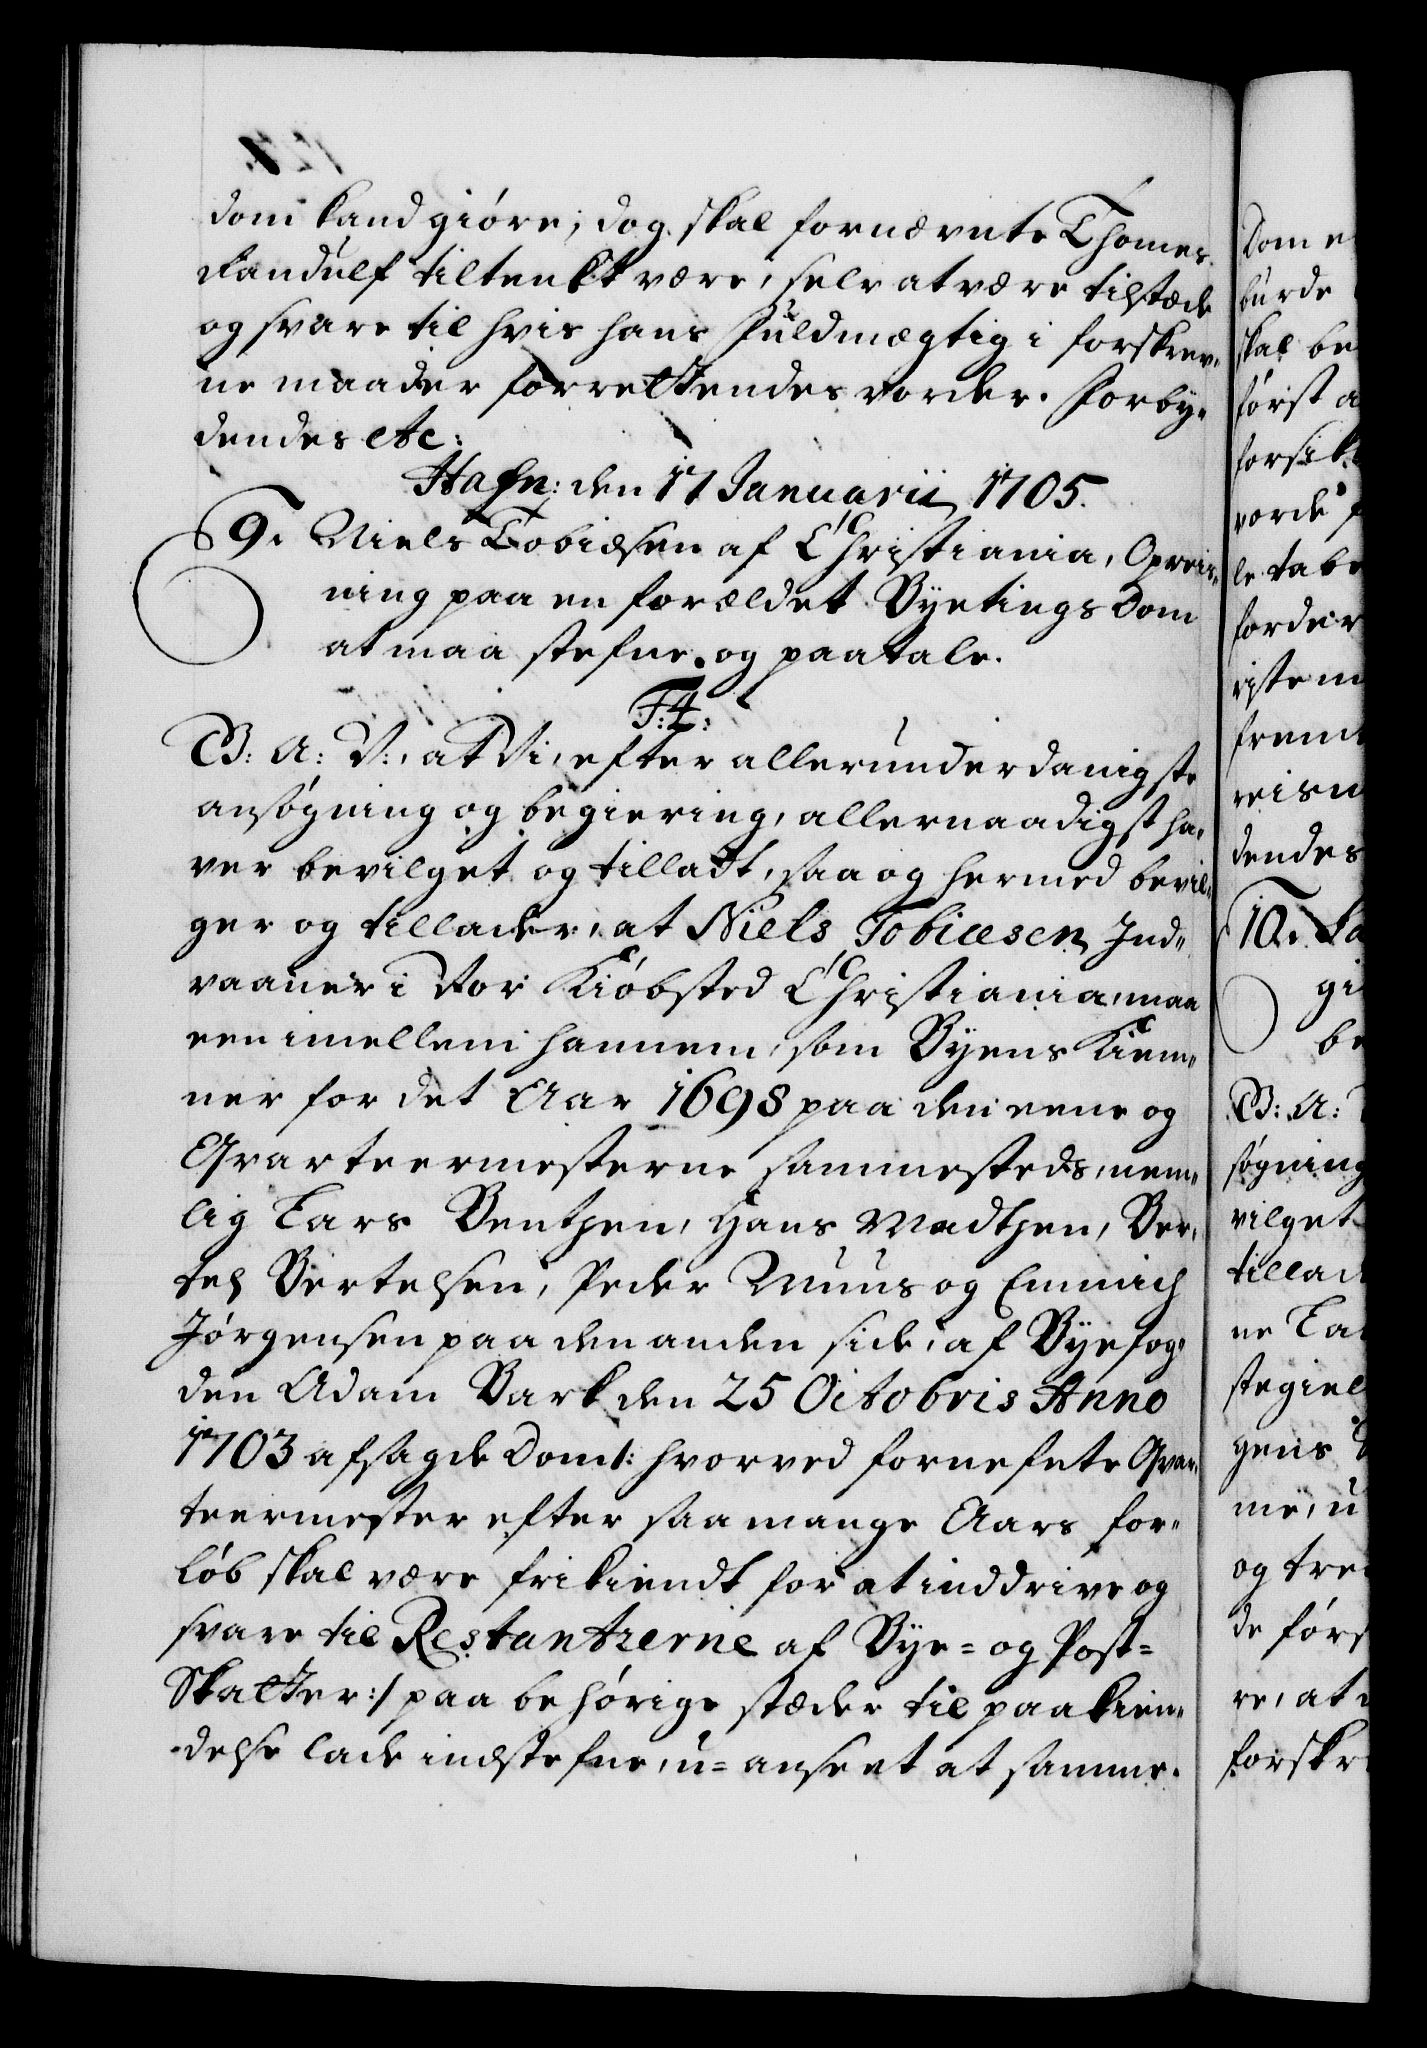 dom kand giöre; dog skal fornævnte Thomes
Randulf tiltenkt være, selv at være tilstæde
og svare til hvis hans Fuldmægtig i forskrev-
ne maader forrettendes vorder. Forby-
dendes etc:
Hafn: den 17 Januarii 1705.
9. Niels Tobiæsen af Christiania, Opreis-
ning paa en forældet Byetings Dom
at maa stefne og paatale.
F: 4:
G: A: V:, at Vi, efter allerunderdanigste
ansøgning og begiering, allernaadigst ha-
ver bevilget og tilladt, saa og hermed bevil-
ger og tillader, at Niels Tobiæsen, Ind-
vaaner i Vor Kiöbsted Christiania, maa
een imellem hannem, som Byens Kiem-
ner for det Aar 1698 paa den eene og
Qvarteermesterne sammesteds, nem-
lig Lars Bentzen, Hans Madtzen, Ber-
tel Bertelsen, Peder Muus og Emmich
Jörgensen paa den anden side, af Byefog-
den Adam Bark den 25 Octobris Anno
1703 afsagde Dom /: hvorved fornefnte Qvar-
teermester efter saa mange Aars for-
löb skal være frikiendt for at inddrive og
svare til Restantzerne af Bye= og Post=
Skatter :/ paa behörige stæder til paakien-
delse lade indstefne, u=anseet at samme
Dom e
burde
skal be
först a
forsik
vorde
le tabe
forder
riste m
frem
reisn
dendes
10. La
gi
be
G: A:
søgning
vilget
tillad
ne La
stegiel
gens
me, u
og tre
de förs
re, at
forskr